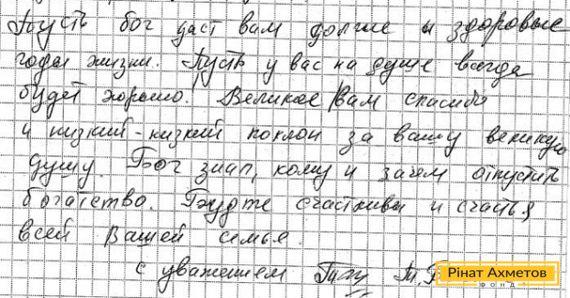 Пусть бог даст вам долгие и здоровые
годы жизни. Пусть у вас на душе всегда
будет хорошо. Великое вам спасибо
и низкий-низкий поклон за вашу великую
душу. Бог знал, кому и зачем отпустить
богатство. Будте счастливы и счастья
всей вашей семье.
с уважением
Рінат Ахметов
ФОНД